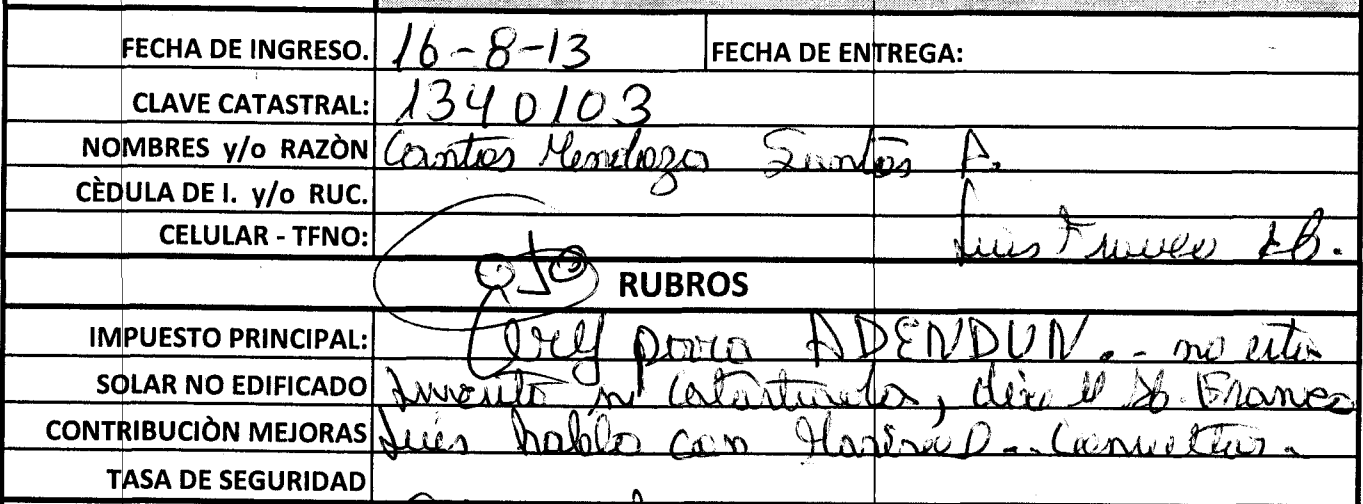 FECHA DE INGRESO. 16-8-13 FECHA DE ENTREGA:
CLAVE CATASTRAL: 1340103
NOMBRES y/o RAZÒN Cantos Mendoza Santos A.
CÈDULA DE I. y/o RUC.
CELULAR - TFNO: Luis Franco Ab.
OJO RUBROS
IMPUESTO PRINCIPAL: para ADENDUN. - no esta
SOLAR NO EDIFICADO ni Catastrada, dice el Ab. Franco
CONTRIBUCIÒN MEJORAS Luis hablo con
TASA DE SEGURIDAD